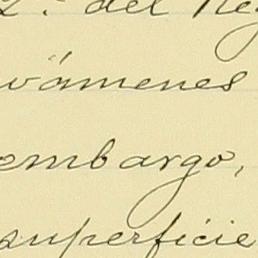 2.º del Reg
vámenes
embargo,
superficie